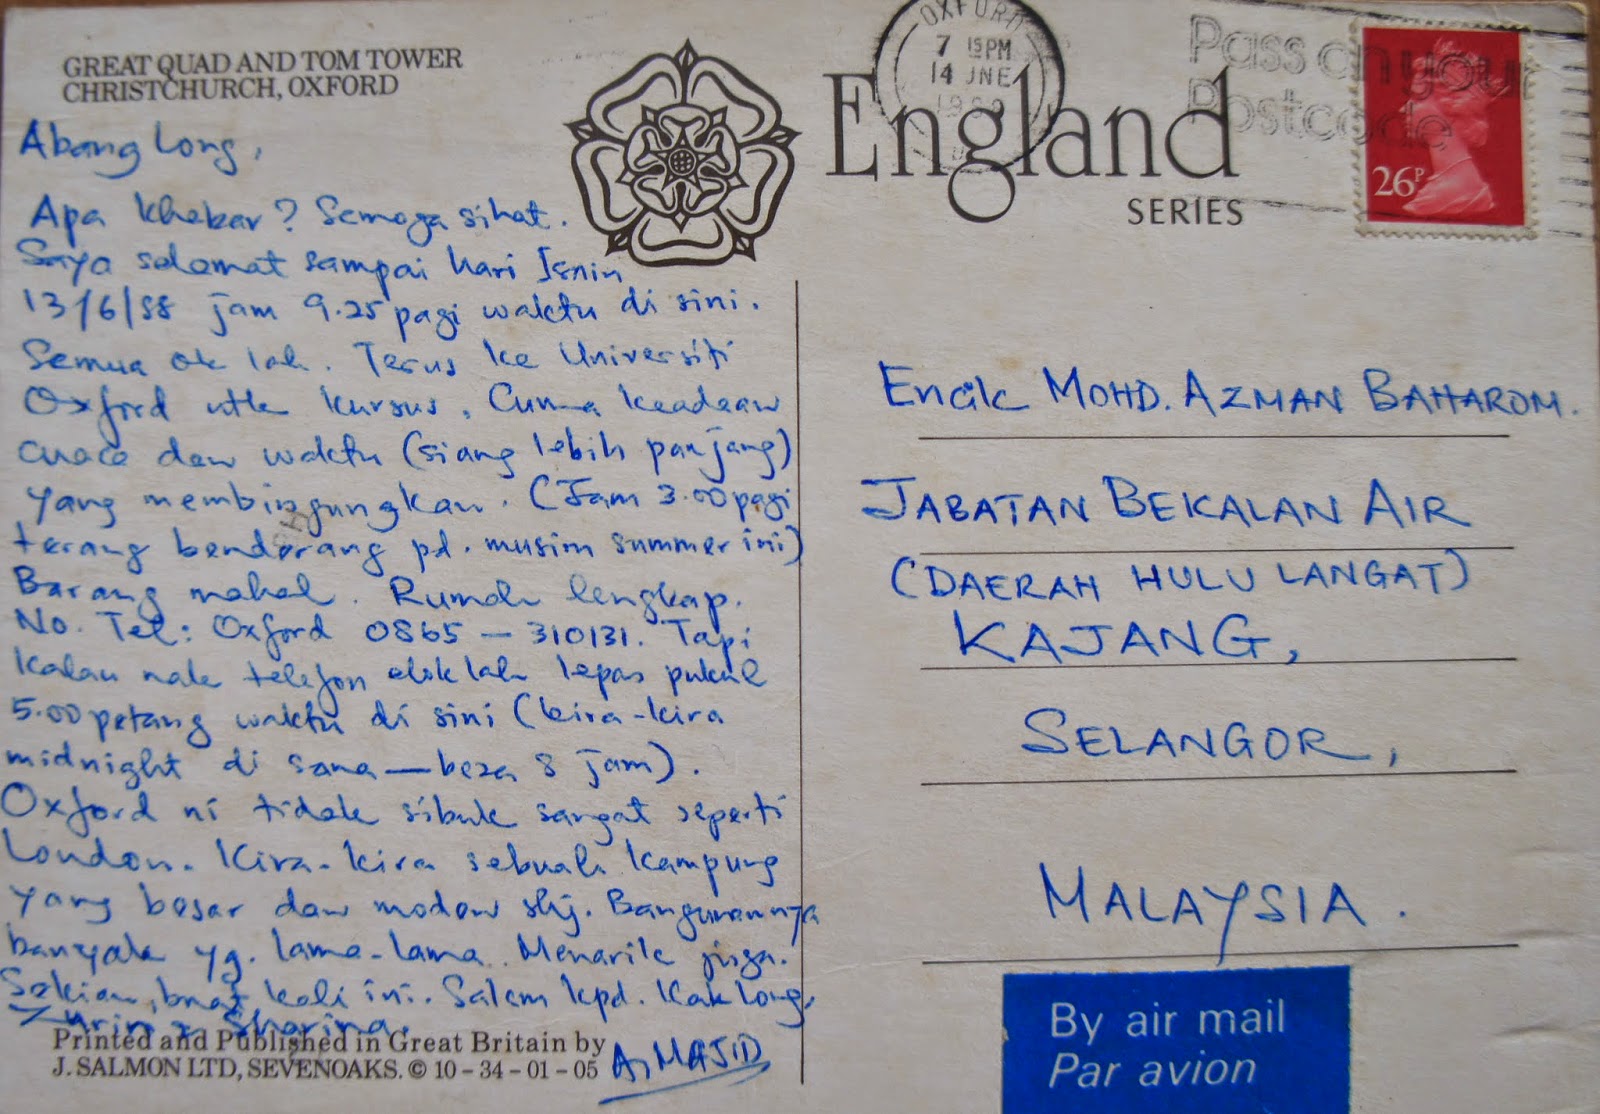 GREAT QUAD AND TOM TOWER
CHRISTCHURCH, OXFORD
Abang Long,
Apa khabar? Semoga sihat.
Saya selamat sampai hari Isnin
13/6/88 jam 9.25 pagi waktu di sini.
Semua ok lah. Terus ke Universiti
Oxford utk kursus. Cuma keadaan
cuaca dan waktu (siang lebih panjang)
yang membingungkan. (Jam 3.00 pagi
terang benderang pd. musim summer ini)
Barang mahal. Rumah lengkap.
No. Tel: Oxford 0865 - 310131. Tapi
kalau nak telefon eloklah lepas pukul
5.00 petang waktu di sini (kira-kira
midnight di sana — beza 8 jam).
Oxford ni tidak sibuk sangat seperti
London. Kira-kira sebuah kampung
yang besar dan moden shj. Bangunannya
banyak yg. lama-lama. Menarik juga.
Sekian, buat kali ini. Salam kpd. Kak Long,
Zurin & Sharina.
Printed and Published in Great Britain by
J. SALMON LTD, SEVENOAKS. © 10 - 34 - 01 - 05
A. MAJID
England
SERIES
OXFORD
7 15PM
14 JNE
Pass on your
Postcode
26P
Encik MOHD. AZMAN BAHAROM.
JABATAN BEKALAN AIR
(DAERAH HULU LANGAT)
KAJANG,
SELANGOR,
MALAYSIA.
By air mail
Par avion